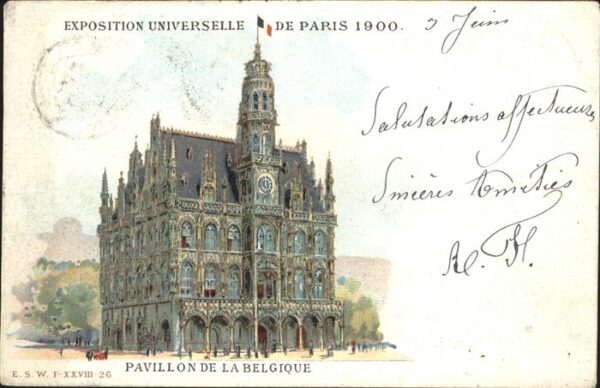 EXPOSITION UNIVERSELLE DE PARIS 1900.
3 Juin
Salutations affectueuses
Sincères Amitiés
PAVILLON DE LA BELGIQUE
E. S. W. I-XXVIII-26